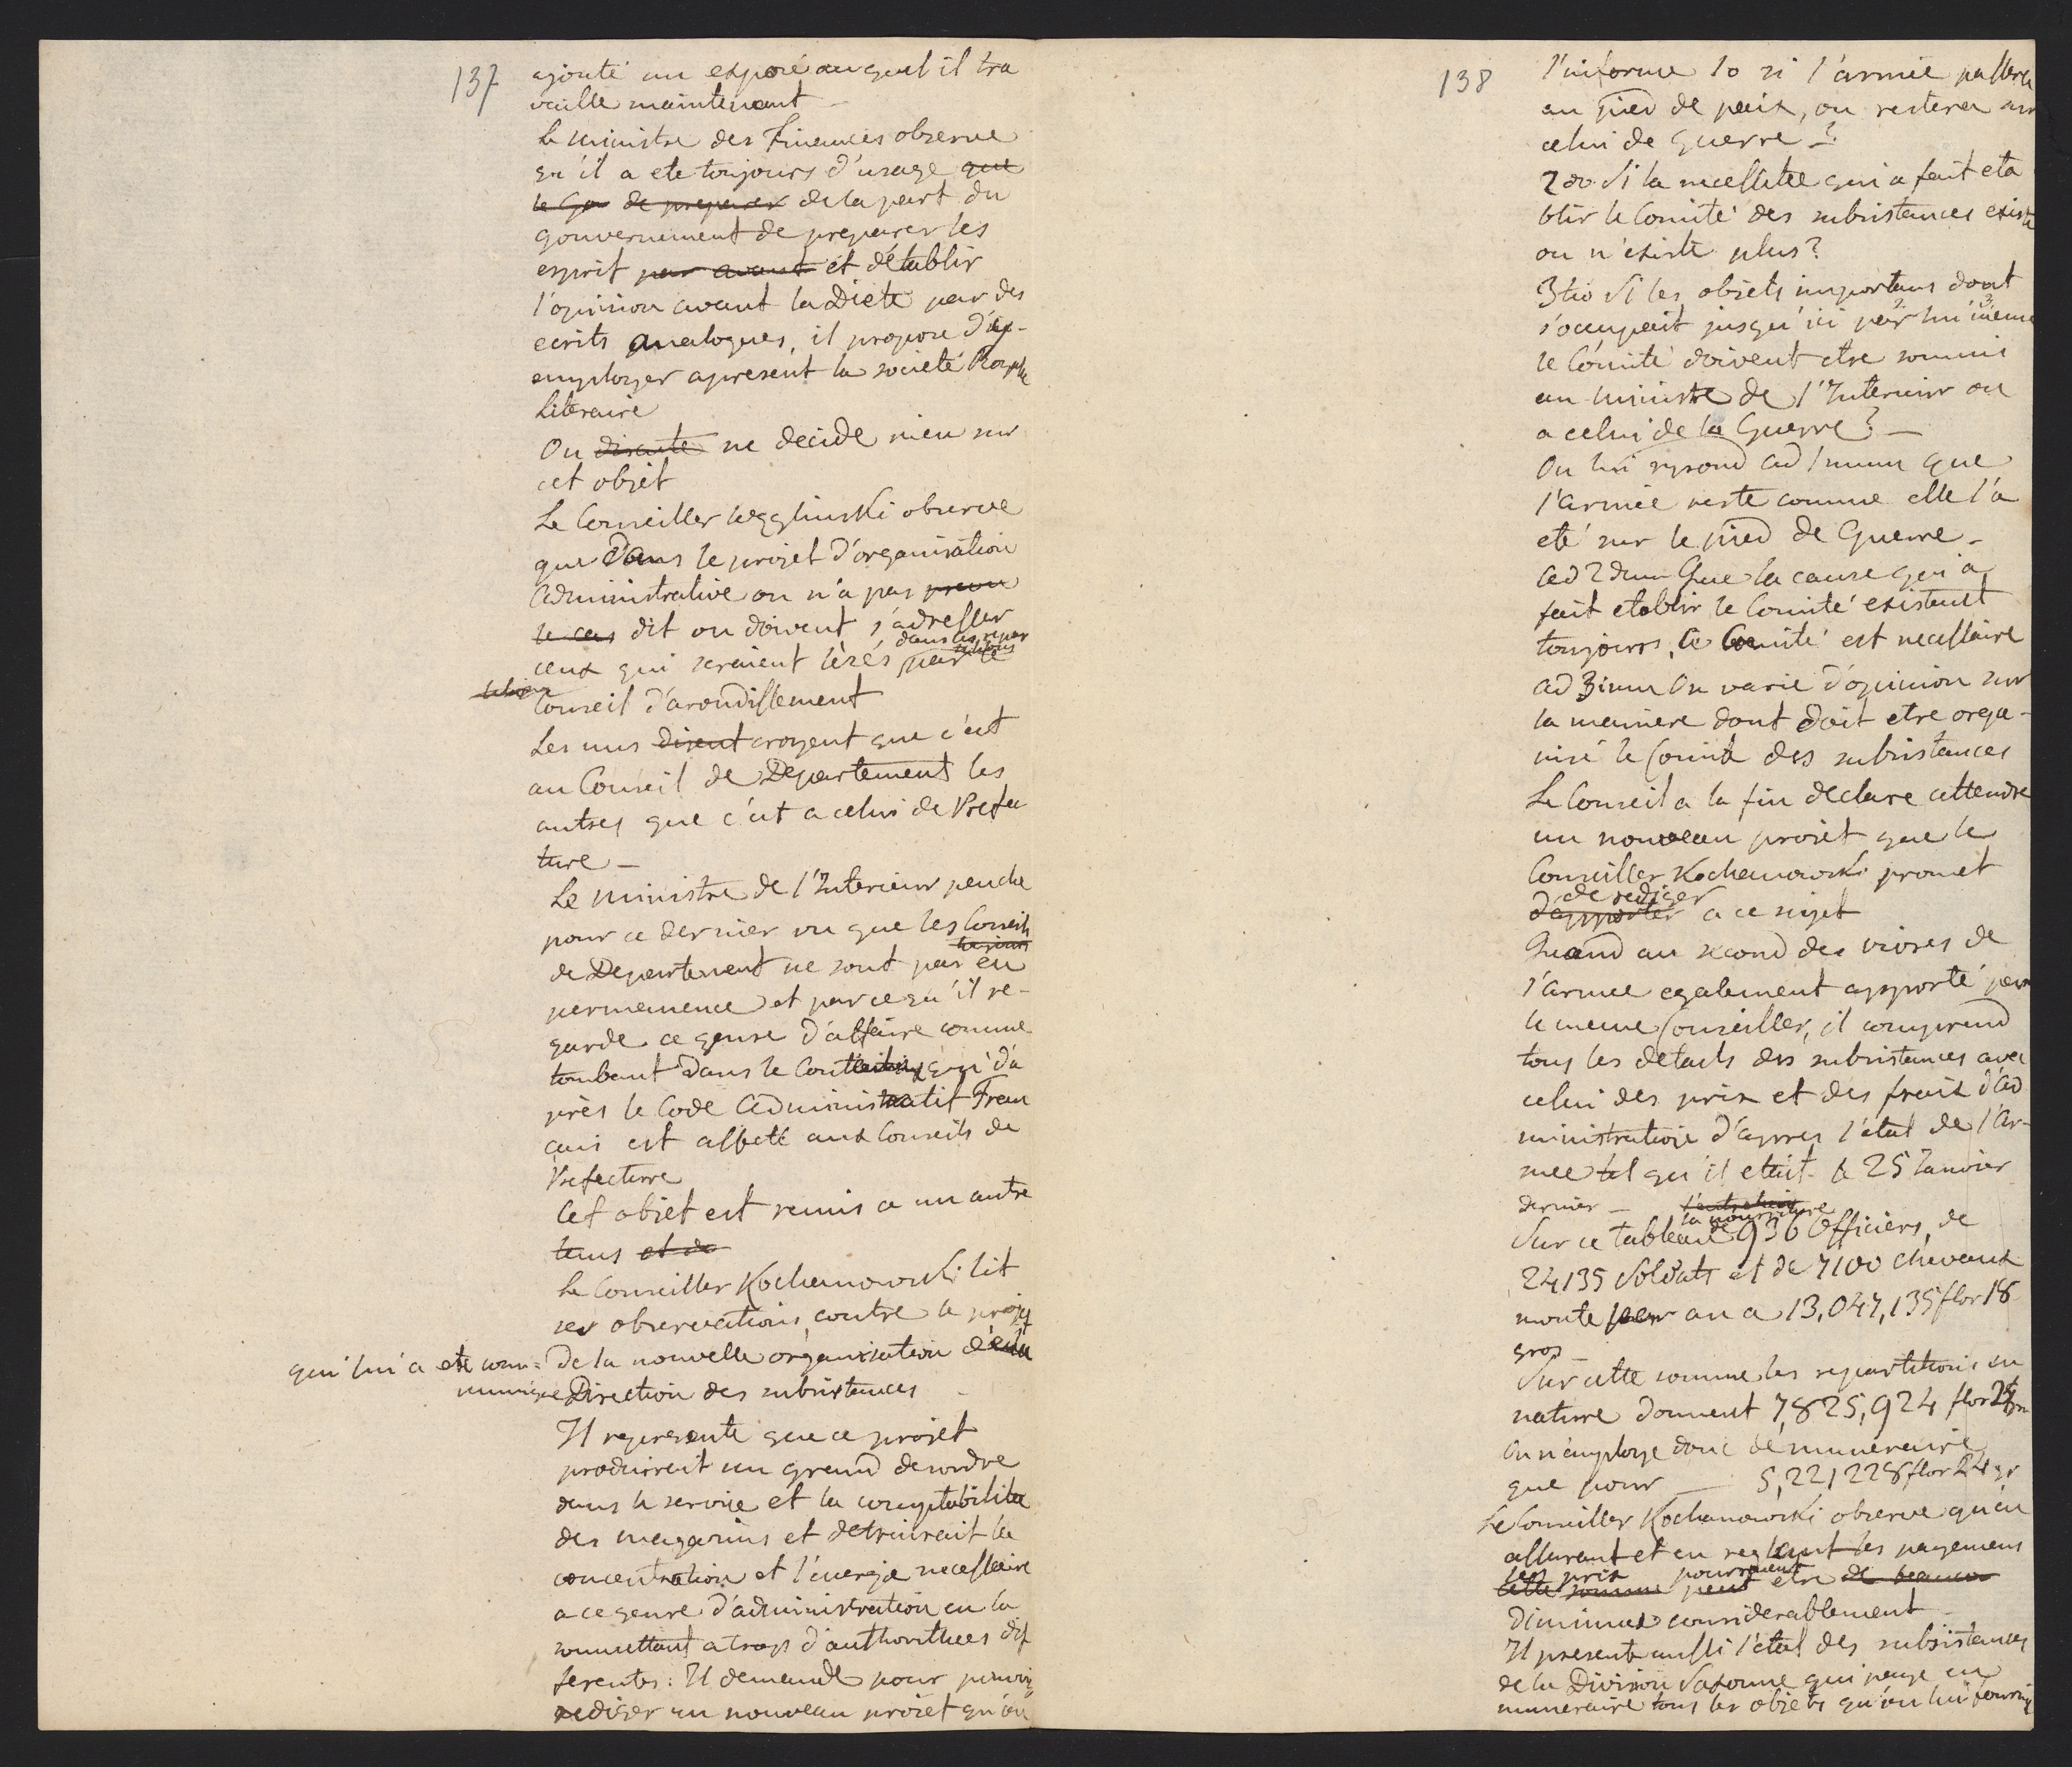 137
ajouté un exposé auquel il tra
vaille maintenant –
Le Ministre des Finences observe
qu'il a ete toujours d'usage que
le Gou de preparer de la part du
gouvernement de preparer les
esprit par avant et d'établir
l'opinion avant la Diete par des
ecrits analogues, il propose d'
employer apresent la société Royale
Literaire
On discute ne decide rien sur
cet objet
Le Conseiller Węgliński observe
que dans le projet d'organisation
administrative on n'a pas prevu
le cas dit ou doivent s'adresser
ceux qui seraient lésés par le
dans les repar
titions
Conseil d'arondissement
Les uns disent croyent que c'est
au Conseil de Departement les
autres que c'est a celui de Prefec
ture –
Le Ministre de l'Interieur penche
pour ce dernier vu que les Conseils
toujours
de Departement ne sont pas en
permanence et parcequ'il re-
garde ce genre d'affaire comme
tombant dans le Contentieux qui d'a
près le Code Administratif Fran
cais est affecté aux Conseils de
Prefecture
Cet objet est remis a un autre
tems et de
Le Conseiller Kochanowski lit
ses observations contre le projet
qui lui a eté com=
muniqué
de la nouvelle organisation de la
Direction des subsistances –
Il represente que ce projet
produirait un grand desordre
dans le service et la comptabilitee
des magasins et detruirait la
concentration et l'energie necessaire
a ce genre d'administration en la
soumettant a trop d'authorithees dif
ferentes: Il demande pour pouvoir
rediger un nouveau projet qu'on
138
l'informe 1o si l'armée passera
au pied de paix, ou restera sur
celui de Guerre –?
2do Si la necessitee qui a fait eta
blir le Comité des subsistances existe
ou n'existe plus?
3tio Si les objets importans dont
s'occupait jusqu'ici par lui même
le Comité doivent etre soumis
au Ministre de l'Interieur ou
a celui de la Guerre? –
On lui repond ad 1mum que
l'armée reste comme elle l'a
eté sur le pied de Guerre –
ad 2dum Que la cause qui a
fait etablir le Comité existant
toujours, le Comité est necessaire
ad 3ium On varie d'opinion sur
la maniere dont doit etre orga-
nisé le Comité des subsistances
Le Conseil a la fin declare attendre
un nouveau projet que le
Conseiller Kochanowski promet
de rediger
d'apporter a ce sujet
Quand au second des vivres de
l'armee egalement apporté par
le meme Conseiller, il comprend
tous les details des subsistances avec
celui des prix et des fraix d'ad
ministration d'apres l'état de l'ar-
mee tel qu'il etait le 25 Janvier
dernier – l'entretien
la nourriture
Sur ce tableau de 936 Officiers, de
24135 Soldats et de 7100 chevaux
monte par an a 13,047,135 flor 18
gros
Sur cette somme les repartitions en
nature donnent 7,825,924 flor
On n'employe donc de numeraire
que pour – 5,221228 flor 24 gr
Le Conseiller Kochanowski observe qu'en
assurant et en reglant les payemens
les prix pourraient
cette somme peut etre de beaucoup
diminues considerablement –
Il presente aussi l'état des subsistances
de la Division Saxonne qui paye en
numeraire tous les objets qu'on lui fournit